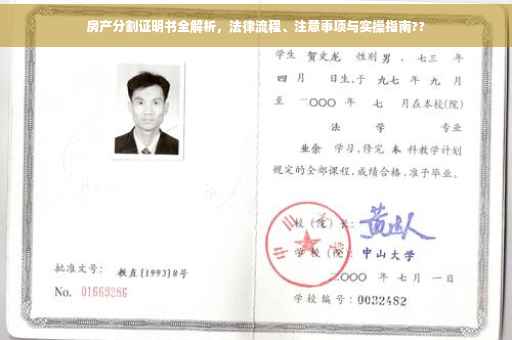 房产分割证明书全解析，法律流程、注意事项与实操指南??
学生 贺文龙 性别 男 ，七三 年
四 月 日生，于 九七 年 九 月
至 二○○○ 年 七 月在本校(院)
法 学 专业
业余 学习，修完 本 科教学计划
规定的全部课程，成绩合格，准予毕业。
校（院）长：
学 校（院）：中山大学
二○○○ 年 七 月 一 日
批准文号： 教直[1993]8号
No. 01669286
学校编号：0032482